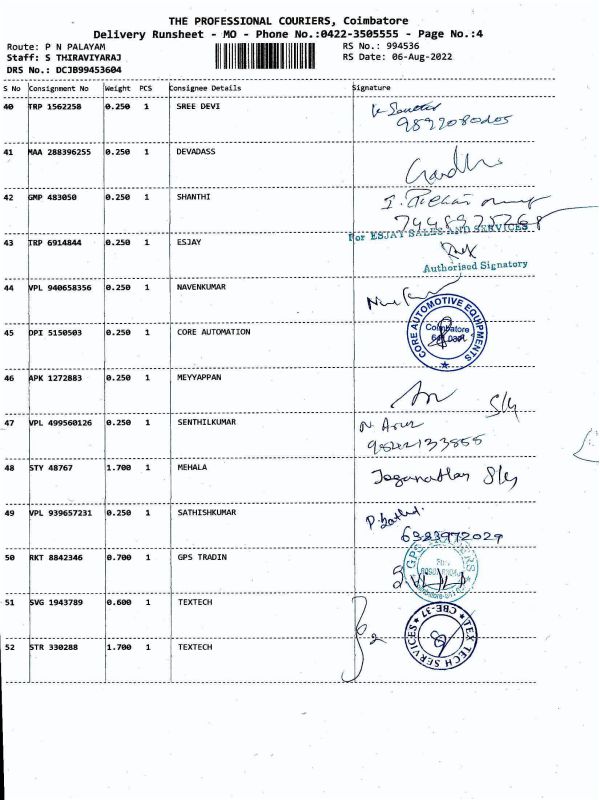 THE PROFESSIONAL COURIERS, Coimbatore
Delivery Runsheet - MO - Phone No.:0422-3505555 - Page No.:4
Route: P N PALAYAM RS No.: 994536
Staff: S THIRAVIYARAJ RS Date: 06-Aug-2022
DRS No.: DCJB99453604
S No Consignment No Weight PCS Consignee Details Signature
40 TRP 1562258 0.250 1 SREE DEVI
41 MAA 288396255 0.250 1 DEVADASS
42 GMP 483050 0.250 1 SHANTHI
7448975268
For ESJAY SALES AND SERVICES
43 TRP 6914844 0.250 1 ESJAY
Authorised Signatory
44 VPL 940658356 0.250 1 NAVENKUMAR
45 DPI 5150503 0.250 1 CORE AUTOMATION
CORE AUTOMOTIVE EQUIPMENTS
Coimbatore
46 APK 1272883 0.250 1 MEYYAPPAN
47 VPL 499560126 0.250 1 SENTHILKUMAR
48 STY 48767 1.700 1 MEHALA
Jaganathan
49 VPL 939657231 0.250 1 SATHISHKUMAR
6383972029
50 RKT 8842346 0.700 1 GPS TRADIN
51 SVG 1943789 0.600 1 TEXTECH
TEX TECH SERVICES
CBE-37
52 STR 330288 1.700 1 TEXTECH